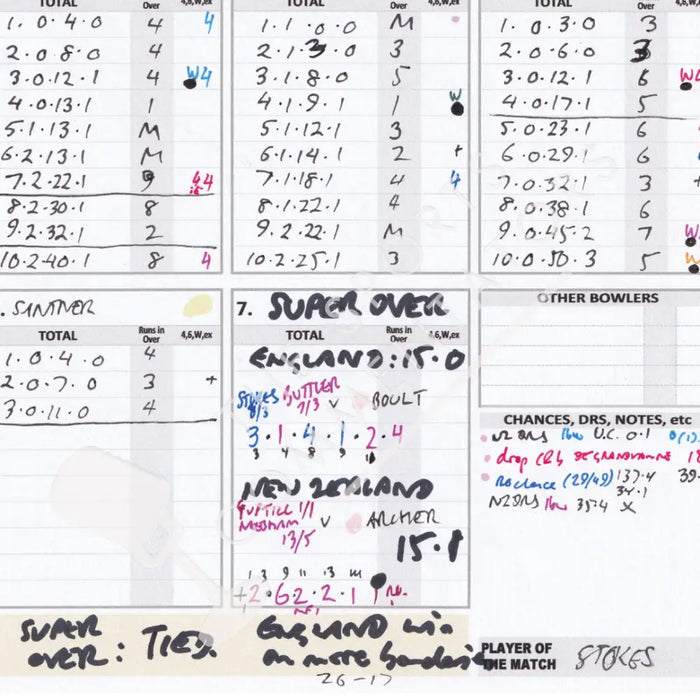 TOTAL Over 4,6,W,ex
1. 0 . 4 . 0 4 4
2 . 0 . 8 . 0 4
3 . 0 . 12 . 1 4 W4
4 . 0 . 13 . 1 1
5 . 1 . 13 . 1 M
6 . 2 . 13 . 1 M
7 . 2 . 22 . 1 9 44
8 . 2 . 30 . 1 8
9 . 2 . 32 . 1 2
10 . 2 . 40 . 1 8 4
TOTAL Over 4,6,W,ex
1 . 1 . 0 . 0 M
2 . 1 . 3 . 0 3
3 . 1 . 8 . 0 5
4 . 1 . 9 . 1 1 W
5 . 1 . 12 . 1 3
6 . 1 . 14 . 1 2 +
7 . 1 . 18 . 1 4 4
8 . 1 . 22 . 1 4
9 . 2 . 22 . 1 M
10 . 2 . 25 . 1 3
TOTAL Over 4,6,W,ex
1. 0 . 3 . 0 3
2 . 0 . 6 . 0 3
3 . 0 . 12 . 1 6 W
4 . 0 . 17 . 1 5
5 . 0 . 23 . 1 6
6 . 0 . 29 . 1 6
7 . 0 . 32 . 1 3
8 . 0 . 38 . 1 6
9 . 0 . 45 . 2 7 W
10 . 0 . 50 . 3 5 W
. SANTNER
TOTAL Runs in Over 4,6,W,ex
1 . 0 . 4 . 0 4
2 . 0 . 7 . 0 3 +
3 . 0 . 11 . 0 4
7. SUPER OVER
TOTAL Runs in Over 4,6,W,ex
ENGLAND: 15.0
STOKES 8/3 BUTTLER 7/3 v BOULT
3 . 1 . 4 . 1 . 2 . 4
3 4 8 9 11
NEW ZEALAND
GUPTILL 1/1
NEESHAM v ARCHER
13/5
15.1
1 3 9 11 13 14
+2 . 6 2 . 2 . 1 1 r.o.
OTHER BOWLERS
CHANCES, DRS, NOTES, etc
NZ DRS lbw U.C. 0.1
drop (2) DE GRANDHOMME
NZ DRS lbw 35.4 x
SUPER OVER: TIED.
ENGLAND win on more boundaries
26-17
PLAYER OF THE MATCH STOKES